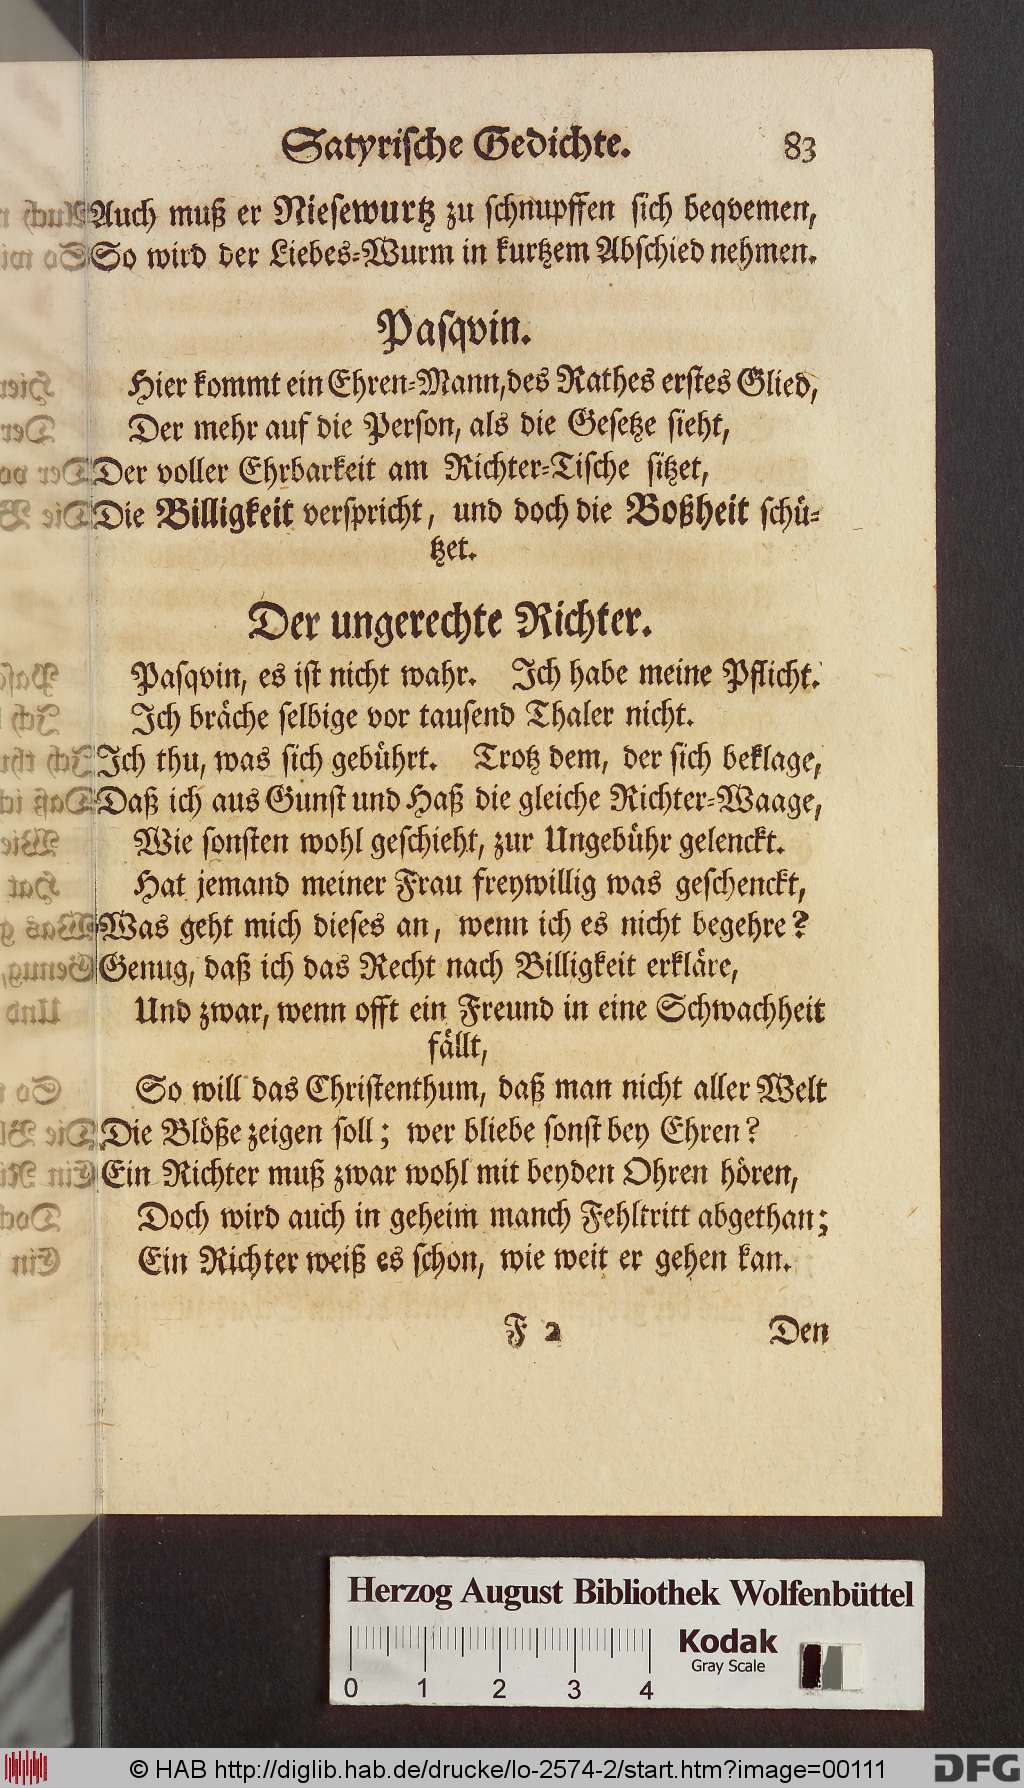 Satyrische Gedichte. 83
Auch muß er Niesewurtz zu schnupffen sich beqvemen,
So wird der Liebes-Wurm in kurtzem Abschied nehmen.
Pasqvin.
Hier kommt ein Ehren-Mann, des Rathes erstes Glied,
Der mehr auf die Person, als die Gesetze sieht,
Der voller Ehrbarkeit am Richter-Tische sitzet,
Die Billigkeit verspricht, und doch die Boßheit schü-
tzet.
Der ungerechte Richter.
Pasqvin, es ist nicht wahr. Ich habe meine Pflicht.
Ich bräche selbige vor tausend Thaler nicht.
Ich thu, was sich gebührt. Trotz dem, der sich beklage,
Daß ich aus Gunst und Haß die gleiche Richter-Waage,
Wie sonsten wohl geschieht, zur Ungebühr gelenckt.
Hat jemand meiner Frau freywillig was geschenckt,
Was geht mich dieses an, wenn ich es nicht begehre?
Genug, daß ich das Recht nach Billigkeit erkläre,
Und zwar, wenn offt ein Freund in eine Schwachheit
fällt,
So will das Christenthum, daß man nicht aller Welt
Die Blöße zeigen soll; wer bliebe sonst bey Ehren?
Ein Richter muß zwar wohl mit beyden Ohren hören,
Doch wird auch in geheim manch Fehltritt abgethan;
Ein Richter weiß es schon, wie weit er gehen kan.
F 2 Den
Herzog August Bibliothek Wolfenbüttel
0 1 2 3 4
Kodak
Gray Scale
© HAB http://diglib.hab.de/drucke/lo-2574-2/start.htm?image=00111
DFG